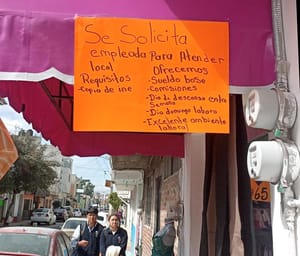 Se Solicita
empleada Para Atender
local
Requisitos
-Copia de ine
Ofrecemos
-Sueldo base
-Comisiones
-Dia de descanso entre
Semana
-Dia domingo laboral
-Excelente ambiente
laboral
65